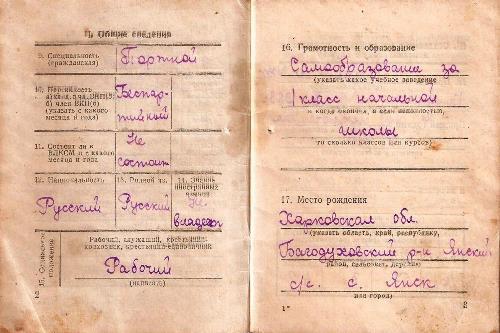 II. Общие сведения
9. Специальность
(гражданская)
Портной
10. Партийность
с какого
месяца и года)
Беспар-
тийной
11. Состоит ли в
ВЛКСМ и с какого
месяца и года
Не
состоит
12. Национальность
Русский
13. Родной яз.
Русский
14. Знание
иностранных
Не
владеет
15. Социальное
положение
Рабочий, служащий, крестьянин-
колхозник, крестьянин-единоличник
Рабочий
(вписать)
16. Грамотность и образование
Самообразование за
(указать какое учебное заведение
1 класс начальной
и когда окончил, а если неполностью,
школы
то сколько классов или курсов)
17. Место рождения
Харковская обл.
(указать область, край, республику,
Багодуховский р-н Янский
район, сельсовет, деревню
с/с. с. Янск
или город)
1*
2